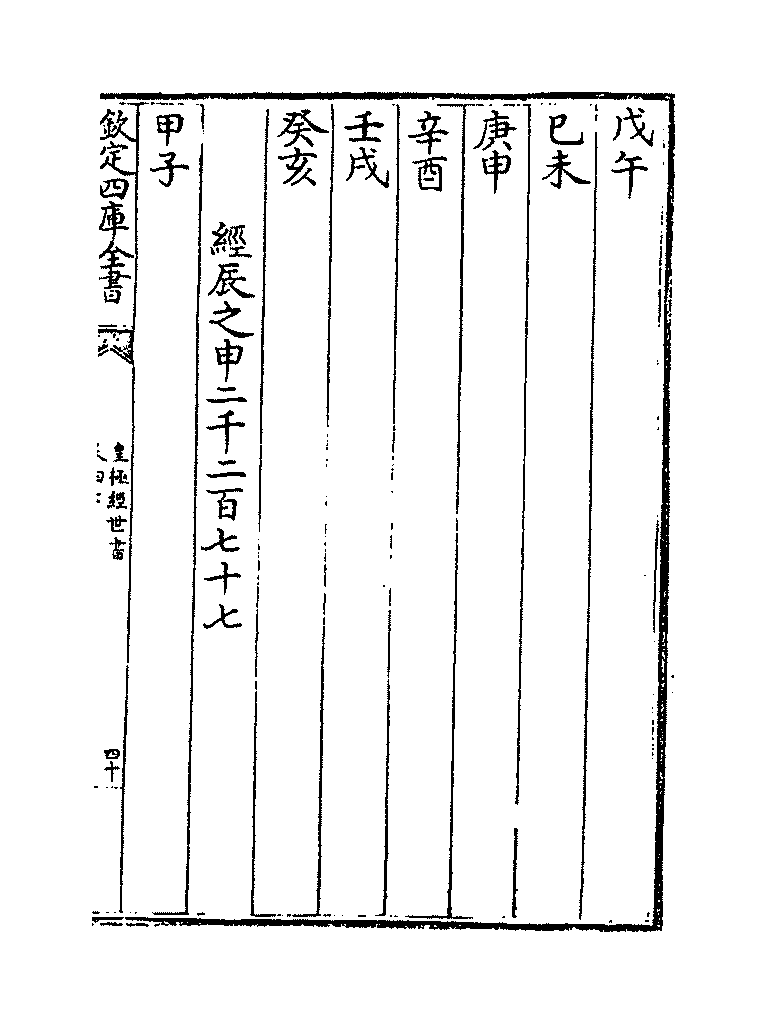 戊午
己未
庚申
辛酉
壬戌
癸亥
經辰之申二千二百七十七
甲子
欽定四庫全書
皇極經世書
四十